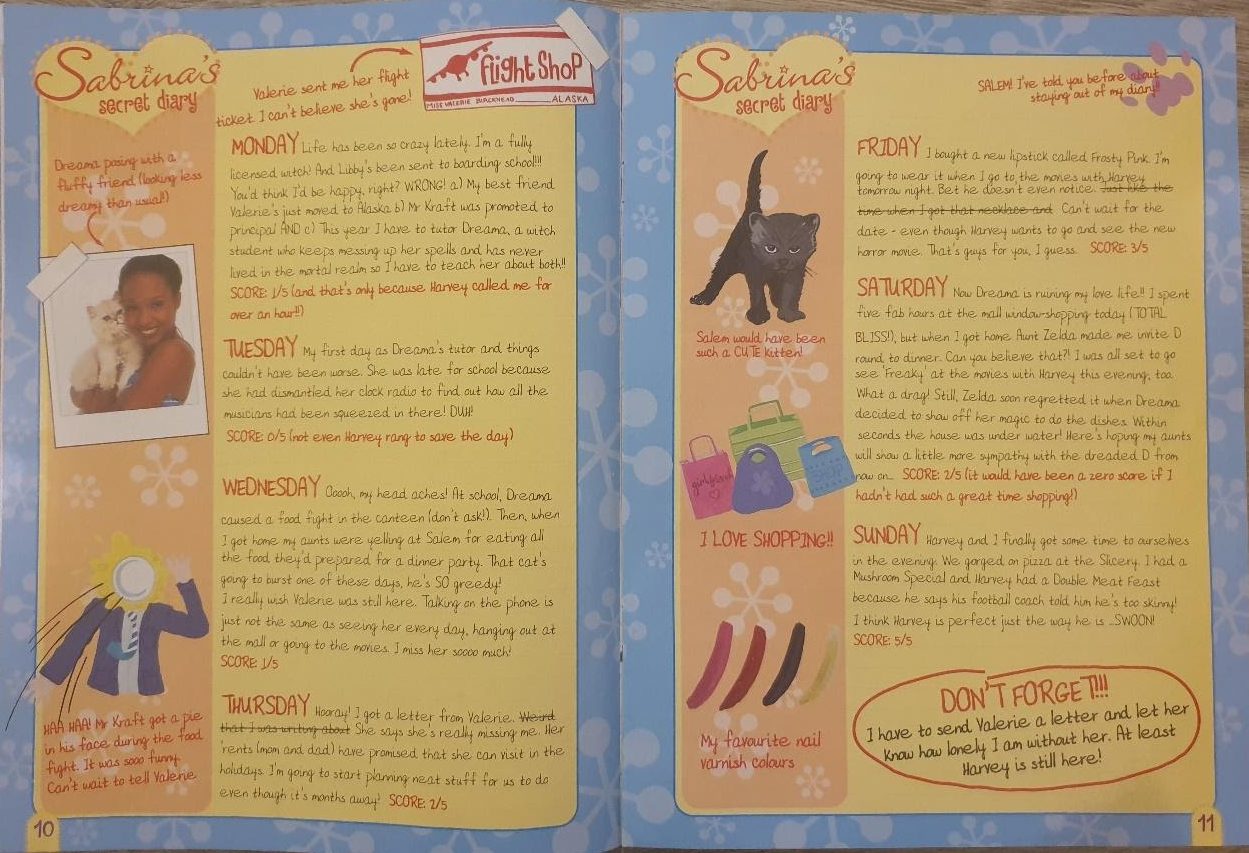 Sabrina's
secret diary
Valerie sent me her flight
ticket I can't believe she's gone!
flight Shop
MISS VALERIE BIRCKHEAD ALASKA
Dreama posing with a
fluffy friend (looking less
dreamy than usual!)
MONDAY Life has been so crazy lately. I'm a fully
licensed witch! And Libby's been sent to boarding school!!!
You'd think I'd be happy, right? WRONG! a) My best friend
Valerie's just moved to Alaska b) Mr Kraft was promoted to
principal AND c) This year I have to tutor Dreama, a witch
student who keeps messing up her spells and has never
lived in the mortal realm so I have to teach her about both!!
SCORE: 1/5 (and that's only because Harvey called me for
over an hour!!)
TUESDAY My first day as Dreama's tutor and things
couldn't have been worse. She was late for school because
she had dismantled her clock radio to find out how all the
musicians had been squeezed in there! DUH!
SCORE: 0/5 (not even Harvey rang to save the day)
WEDNESDAY Ooooh, my head aches! At school, Dreama
caused a food fight in the canteen (don't ask!). Then, when
I got home my aunts were yelling at Salem for eating all
the food they'd prepared for a dinner party. That cat's
going to burst one of these days, he's SO greedy!
I really wish Valerie was still here. Talking on the phone is
just not the same as seeing her every day, hanging out at
the mall or going to the movies. I miss her soooo much!
SCORE: 1/5
HAA HAA! Mr Kraft got a pie
in his face during the food
fight. It was sooo funny.
Can't wait to tell Valerie
THURSDAY Hooray! I got a letter from Valerie. Weird
that I was writing about She says she's really missing me. Her
'rents (mom and dad) have promised that she can visit in the
holidays. I'm going to start planning neat stuff for us to do
even though it's months away! SCORE: 2/5
10
Sabrina's
secret diary
SALEM! I've told you before about
staying out of my diary!!
FRIDAY I bought a new lipstick called Frosty Pink. I'm
going to wear it when I go to the movies with Harvey
tomorrow night. Bet he doesn't even notice. Just like the
time when I got that necklace and Can't wait for the
date - even though Harvey wants to go and see the new
horror movie. That's guys for you, I guess. SCORE: 3/5
Salem would have been
such a CUTE kitten!
SATURDAY Now Dreama is ruining my love life!! I spent
five fab hours at the mall window-shopping today (TOTAL
BLISS!), but when I got home Aunt Zelda made me invite D
round to dinner. Can you believe that?! I was all set to go
see 'Freaky' at the movies with Harvey this evening, too.
What a drag! Still, Zelda soon regretted it when Dreama
decided to show off her magic to do the dishes. Within
seconds the house was under water! Here's hoping my aunts
will show a little more sympathy with the dreaded D from
now on... SCORE: 2/5 (it would have been a zero score if I
hadn't had such a great time shopping!)
I LOVE SHOPPING!!
SUNDAY Harvey and I finally got some time to ourselves
in the evening. We gorged on pizza at the Slicery. I had a
Mushroom Special and Harvey had a Double Meat Feast
because he says his football coach told him he's too skinny!
I think Harvey is perfect just the way he is ...SWOON!
SCORE: 5/5
My favourite nail
varnish colours
DON'T FORGET!!!
I have to send Valerie a letter and let her
know how lonely I am without her. At least
Harvey is still here!
11